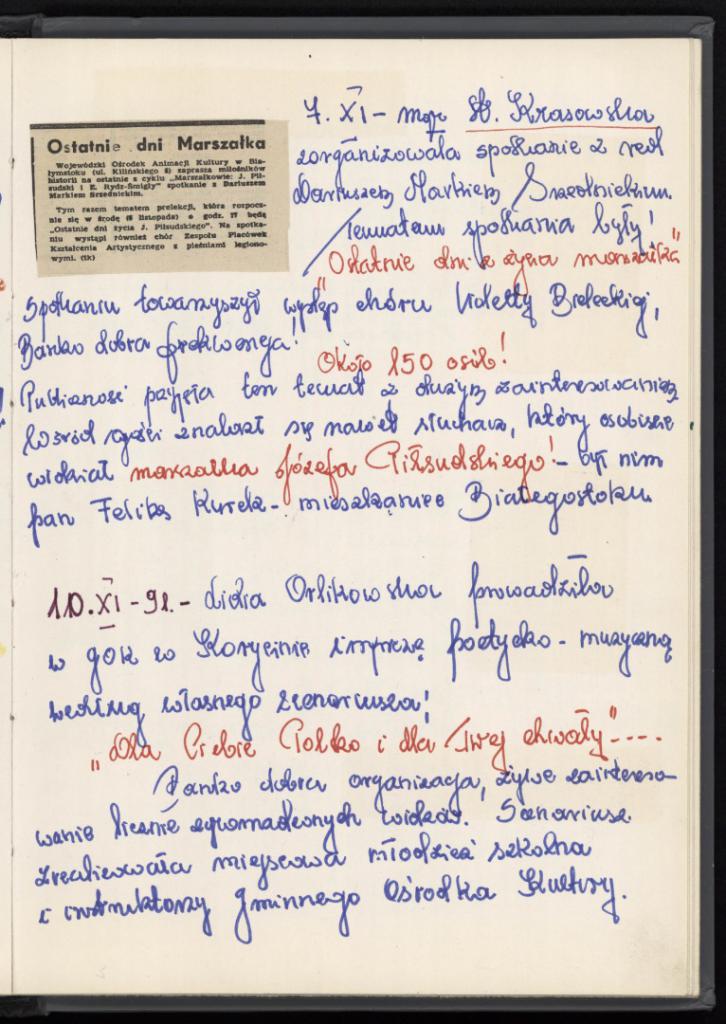 Ostatnie dni Marszałka
Wojewódzki Ośrodek Animacji Kultury w Bia-
łymstoku (ul. Kilińskiego 8) zaprasza miłośników
historii na ostatnie z cyklu „Marszałkowie: J. Pił-
sudski i E. Rydz-Śmigły" spotkanie z Dariuszem
Markiem Srzednickim.
Tym razem tematem prelekcji, która rozpocz-
nie się w środę (6 listopada) o godz. 17 będą
„Ostatnie dni życia J. Piłsudskiego". Na spotka-
niu wystąpi również chór Zespołu Placówek
Kształcenia Artystycznego z pieśniami legiono-
wymi. (ik)
7. XI - mgr St. Krasowska
zorganizowała spotkanie z red
Dariuszem Markiem Srzednickim.
Tematem spotkania były!
"Ostatnie dni z życia marszałka"
Spotkaniu towarzyszył występ chóru Violetty Bieleckiej,
Bardzo dobra frekwencja!
Około 150 osób!
Publiczność przyjęła ten temat z dużym zainteresowaniem
Wśród gości znalazł się nawet słuchacz, który osobiście
widział marszałka Józefa Piłsudskiego! - był nim
pan Feliks Kurek - mieszkaniec Białegostoku
10. XI - 91. - Lidia Orlikowska prowadziła
w GOK w Korycinie imprezę poetycko - muzyczną
według własnego scenariusza!
"Dla Ciebie Polsko i dla Twej chwały"....
Bardzo dobra organizacja, żywe zaintereso-
wanie licznie zgromadzonych widzów. Scenariusz
zrealizowała miejscowa młodzież szkolna
i instruktorzy Gminnego Ośrodka Kultury.